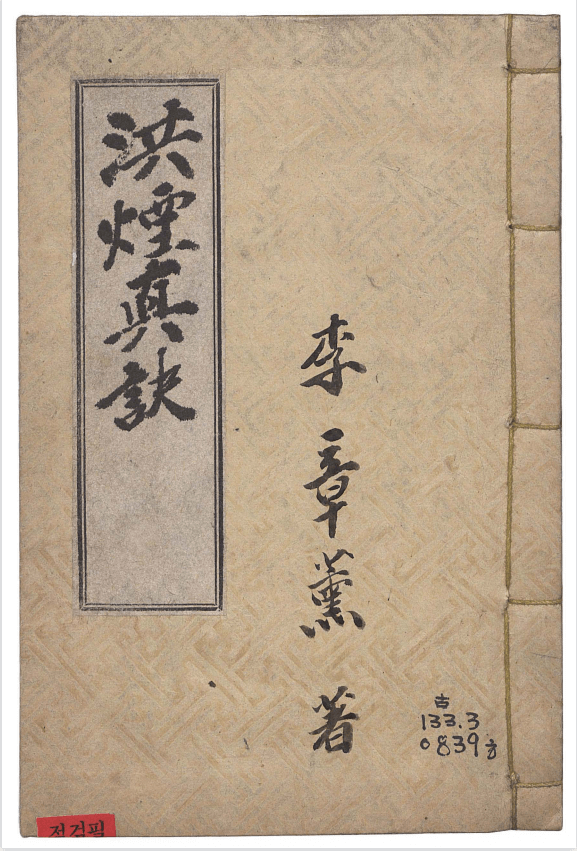 洪煙真訣
李章薰 著
古
133.3
0839ㅎ
점검필